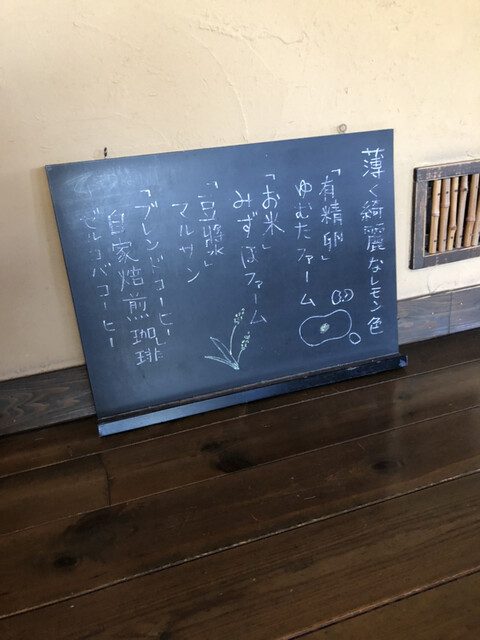 薄く綺麗なレモン色
「有精卵」
ゆむたファーム
「お米」
みずほファーム
「豆漿」
マルサン
「ブレンドコーヒー」
自家焙煎珈琲
ゼルコバコーヒー